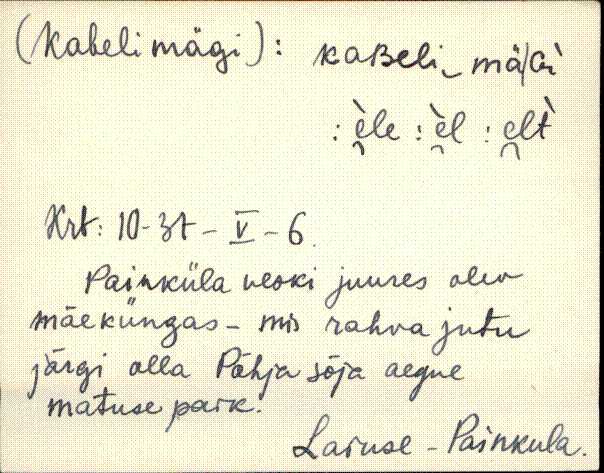 (Kabelimägi): kaBeli‿mä|Gì
: èle : èl : elt̀
Krt: 10-31-V-6.
Painküla veski juures olev
mäeküngas - mis rahva jutu
järgi olla Põhja sõja aegne
matuse paik.
Laiuse - Painkula.